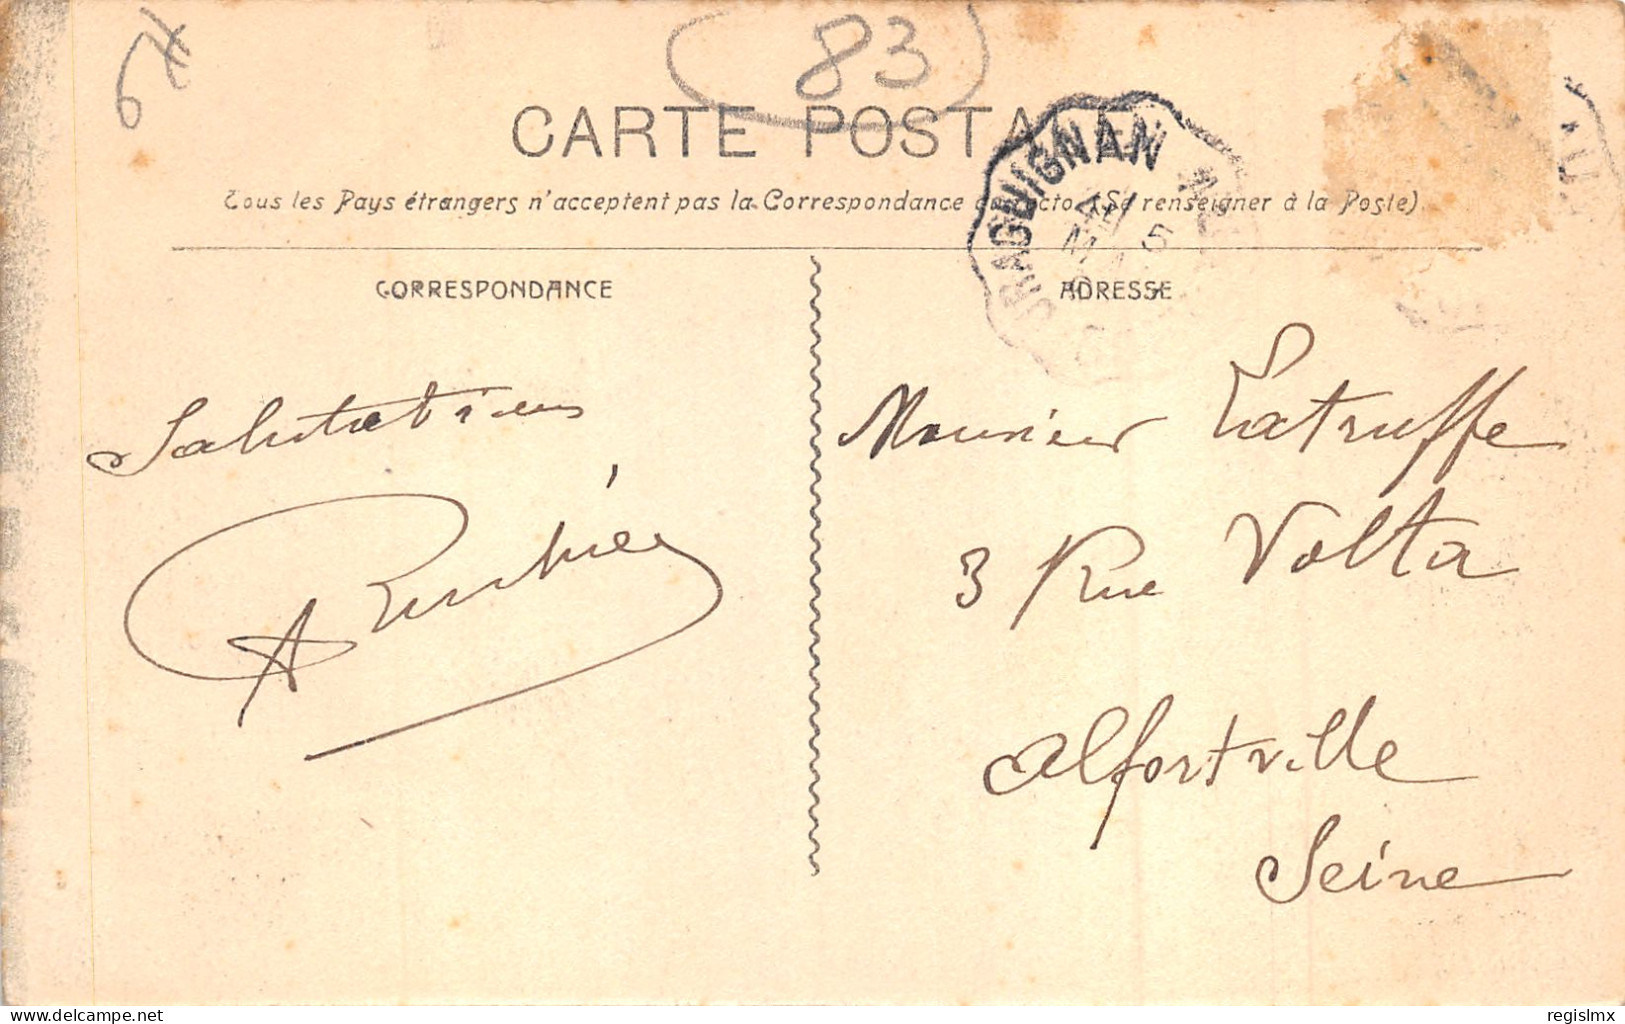 67
(83)
CARTE POSTALE
Tous les Pays étrangers n'acceptent pas la Correspondance au recto. (Se renseigner à la Poste)
DRAGUIGNAN
5
CORRESPONDANCE
ADRESSE
Salutations
A
Monsieur Latruffe
3 Rue Volta
Alfortville
Seine
delcampe.net
regislmx